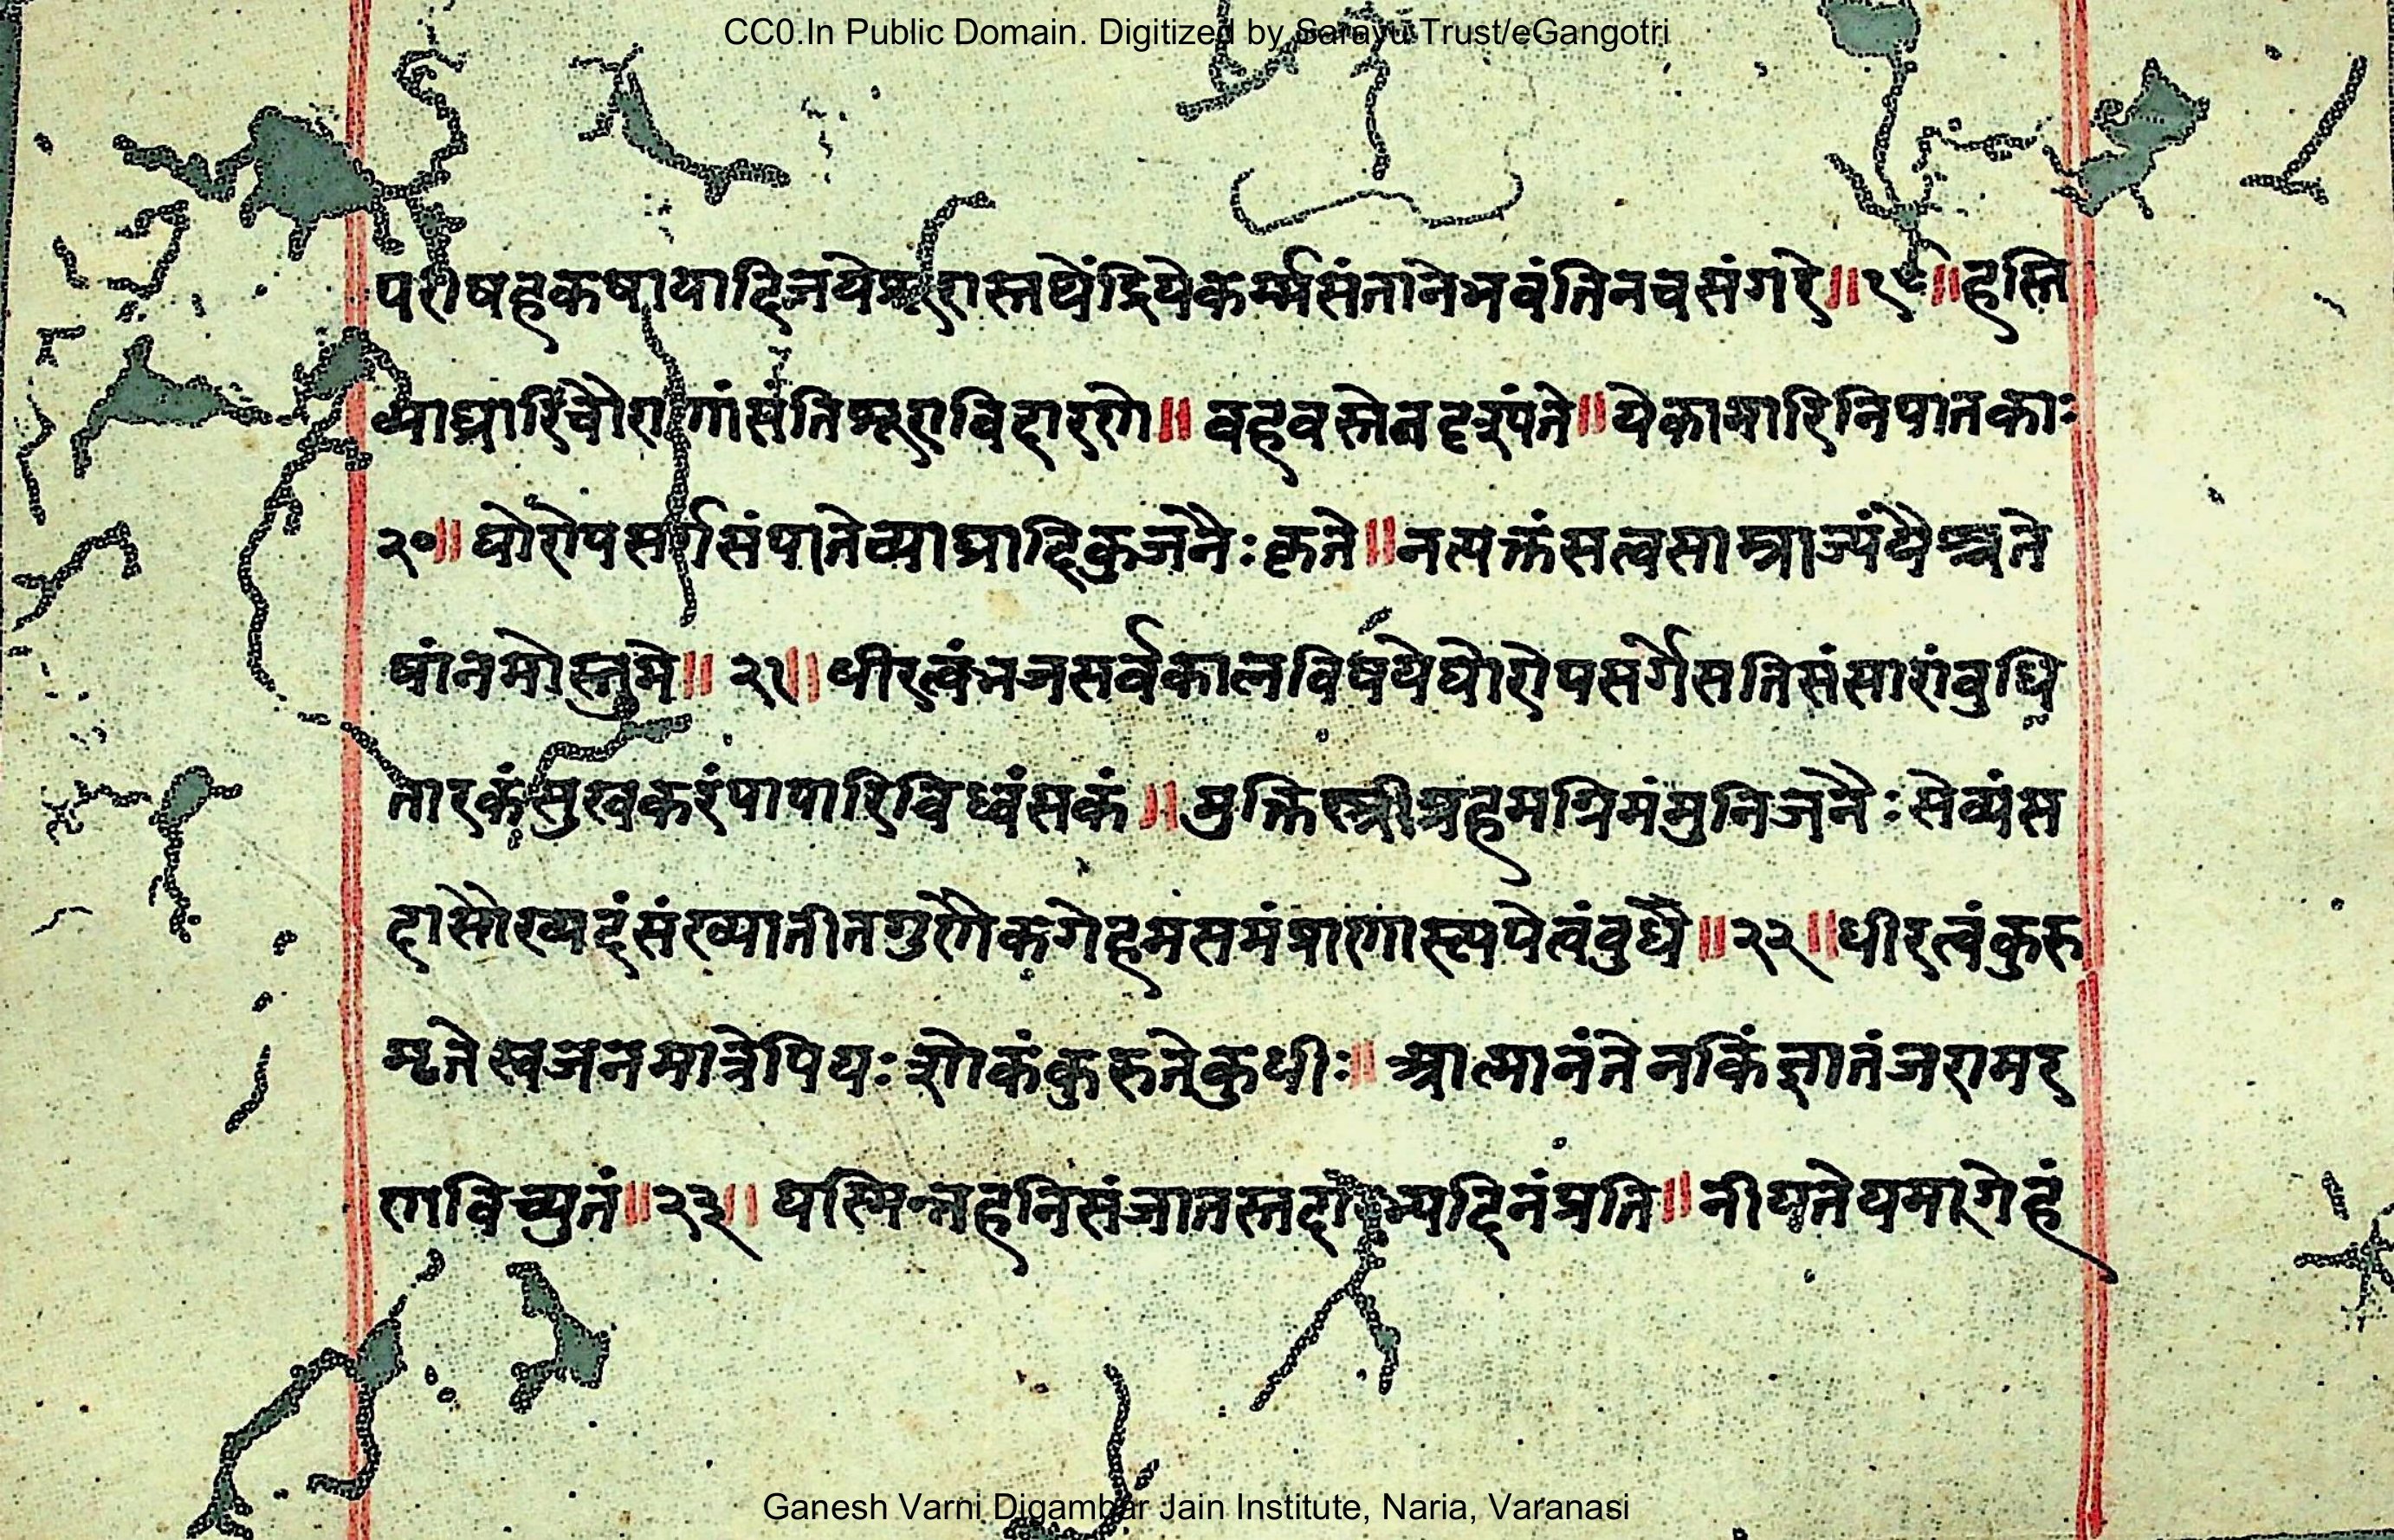 CC0.In Public Domain. Digitized by Sarayu Trust/eGangotri
परीषहकषायादिजयेशूरास्तथेंद्रियेकर्म्मसंतानेभवंतिनचसंगरे॥१९॥हस्ति
व्याघ्रारिचौराणांसंतिशूराविदारणे॥वहवस्तेनदृश्यंते॥येकामारिनिपातकाः
२०॥घोरोपसर्गसंपातेव्याघ्रादिकुजनैःकृते॥नत्यक्तंसत्वसाम्राज्यंयैश्चते
षांनमोस्तुमे॥२१॥धीरत्वंभजसर्वकालविषयेघोरोपसर्गेसतिसंसारांवुधि
तारकंसुखकरंपापारिविध्वंसकं॥मुक्तिस्त्रीग्रहमग्रिमंमुनिजनैःसेव्यंस
दासौख्यदंसंख्यातीतगुणैकगेहमसमंप्राणास्त्ययेत्वंवुधै॥२२॥धीरत्वंकुरु
मृतेस्वजनमात्रेपियःशोकंकुरुतेकुधीः॥आत्मानंतेनकिंज्ञातंजरामर
णविच्युतं॥२३॥यस्मिन्नहनिसंजातस्तदाभ्यदिनंप्रति॥नीयतेयमागेहं
Ganesh Varni Digambar Jain Institute, Naria, Varanasi